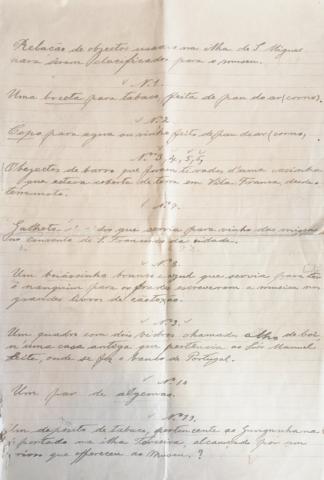 Relacão de objectos usados na ilha de S. Miguel
para serem classificados para o museu.
Nº 1
Uma boceta para tabaco, feita de pau do ar (corno).
Nº 2
Copo para agua ou vinho feito de pau de ar (corno)
Nº 3, 4, 5, 6
Objectos de barro que foram tirados d'uma casinha
que esteva coberta de terra em Vila Franca, desde o
terramoto.
Nº 7.
Galheta de que servia para vinho das missas
no convento de S. Francisco da cidade.
Nº 8
Um boiãosinho branco e azul que servia para
para os frades escreverem a musica nos
grandes livros de cantochão.
Nº 9.
Um quadro com dois vidros chamado olho de boi
n'uma casa antiga que pertencia ao Manuel
Leite, onde se fez o banco de Portugal.
Nº 10
Um par de algemas.
Nº 11.
Um deposito de tabaco, pertencente ao Gungunhana
deportado na ilha Terceira, alcançado por um
que offereceu ao Museu. ?